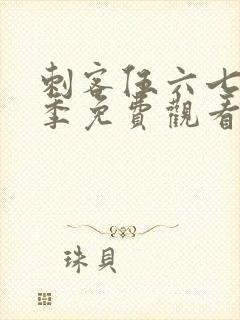 刺客伍六七
季免費觀看
珠貝